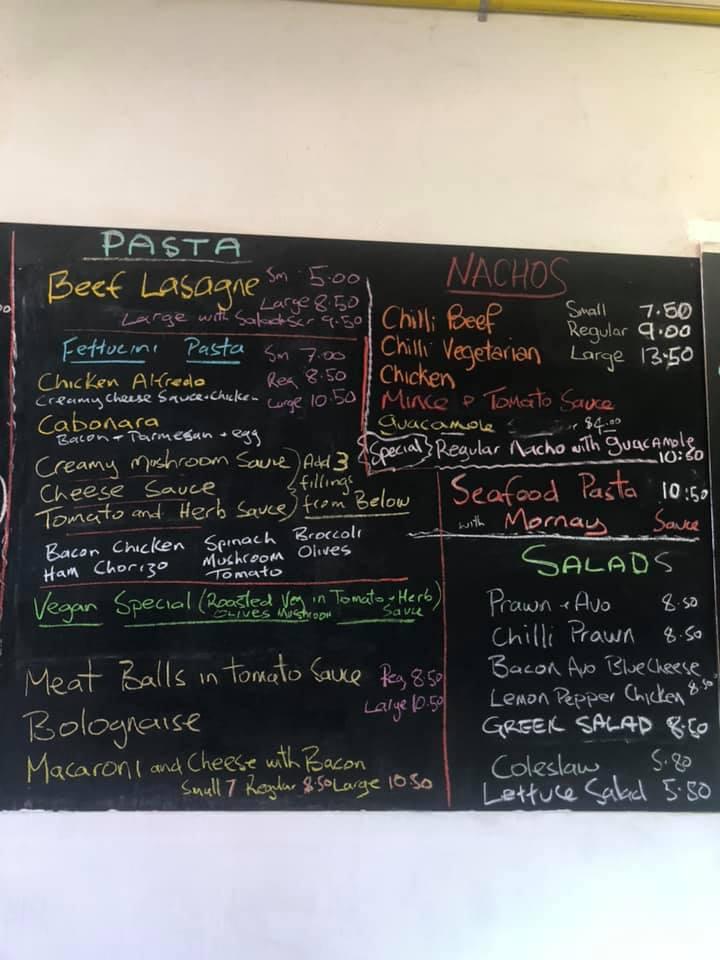 PASTA
Beef Lasagne Sm 5.00
Large 8.50
Large with Salad 9.50
Fettucini Pasta Sm 7.00
Chicken Alfredo Reg 8.50
Creamy cheese Sauce + Chicken Large 10.50
Cabonara
Bacon + Parmesan + egg
Creamy Mushroom Sauce Add 3
Cheese Sauce fillings
Tomato and Herb Sauce from Below
Bacon Chicken Spinach Broccoli
Ham Chorizo Mushroom Olives
Tomato
Vegan Special (Roasted Veg in Tomato + Herb
OLIVES MUSHROOM Sauce)
Meat Balls in tomato Sauce Reg 8.50
Large 10.50
Bolognaise
Macaroni and Cheese with Bacon
Small 7 Regular 8.50 Large 10.50
NACHOS
Chilli Beef Small 7.50
Chilli Vegetarian Regular 9.00
Chicken Large 13.50
Mince & Tomato Sauce
Guacamole $4.00
Special Regular Nacho with guacamole
10:50
Seafood Pasta 10:50
with Mornay Sauce
SALADS
Prawn + Avo 8.50
Chilli Prawn 8.50
Bacon Avo Blue Cheese
Lemon Pepper Chicken 8.50
GREEK SALAD 8.50
Coleslaw
Lettuce Salad 5.50